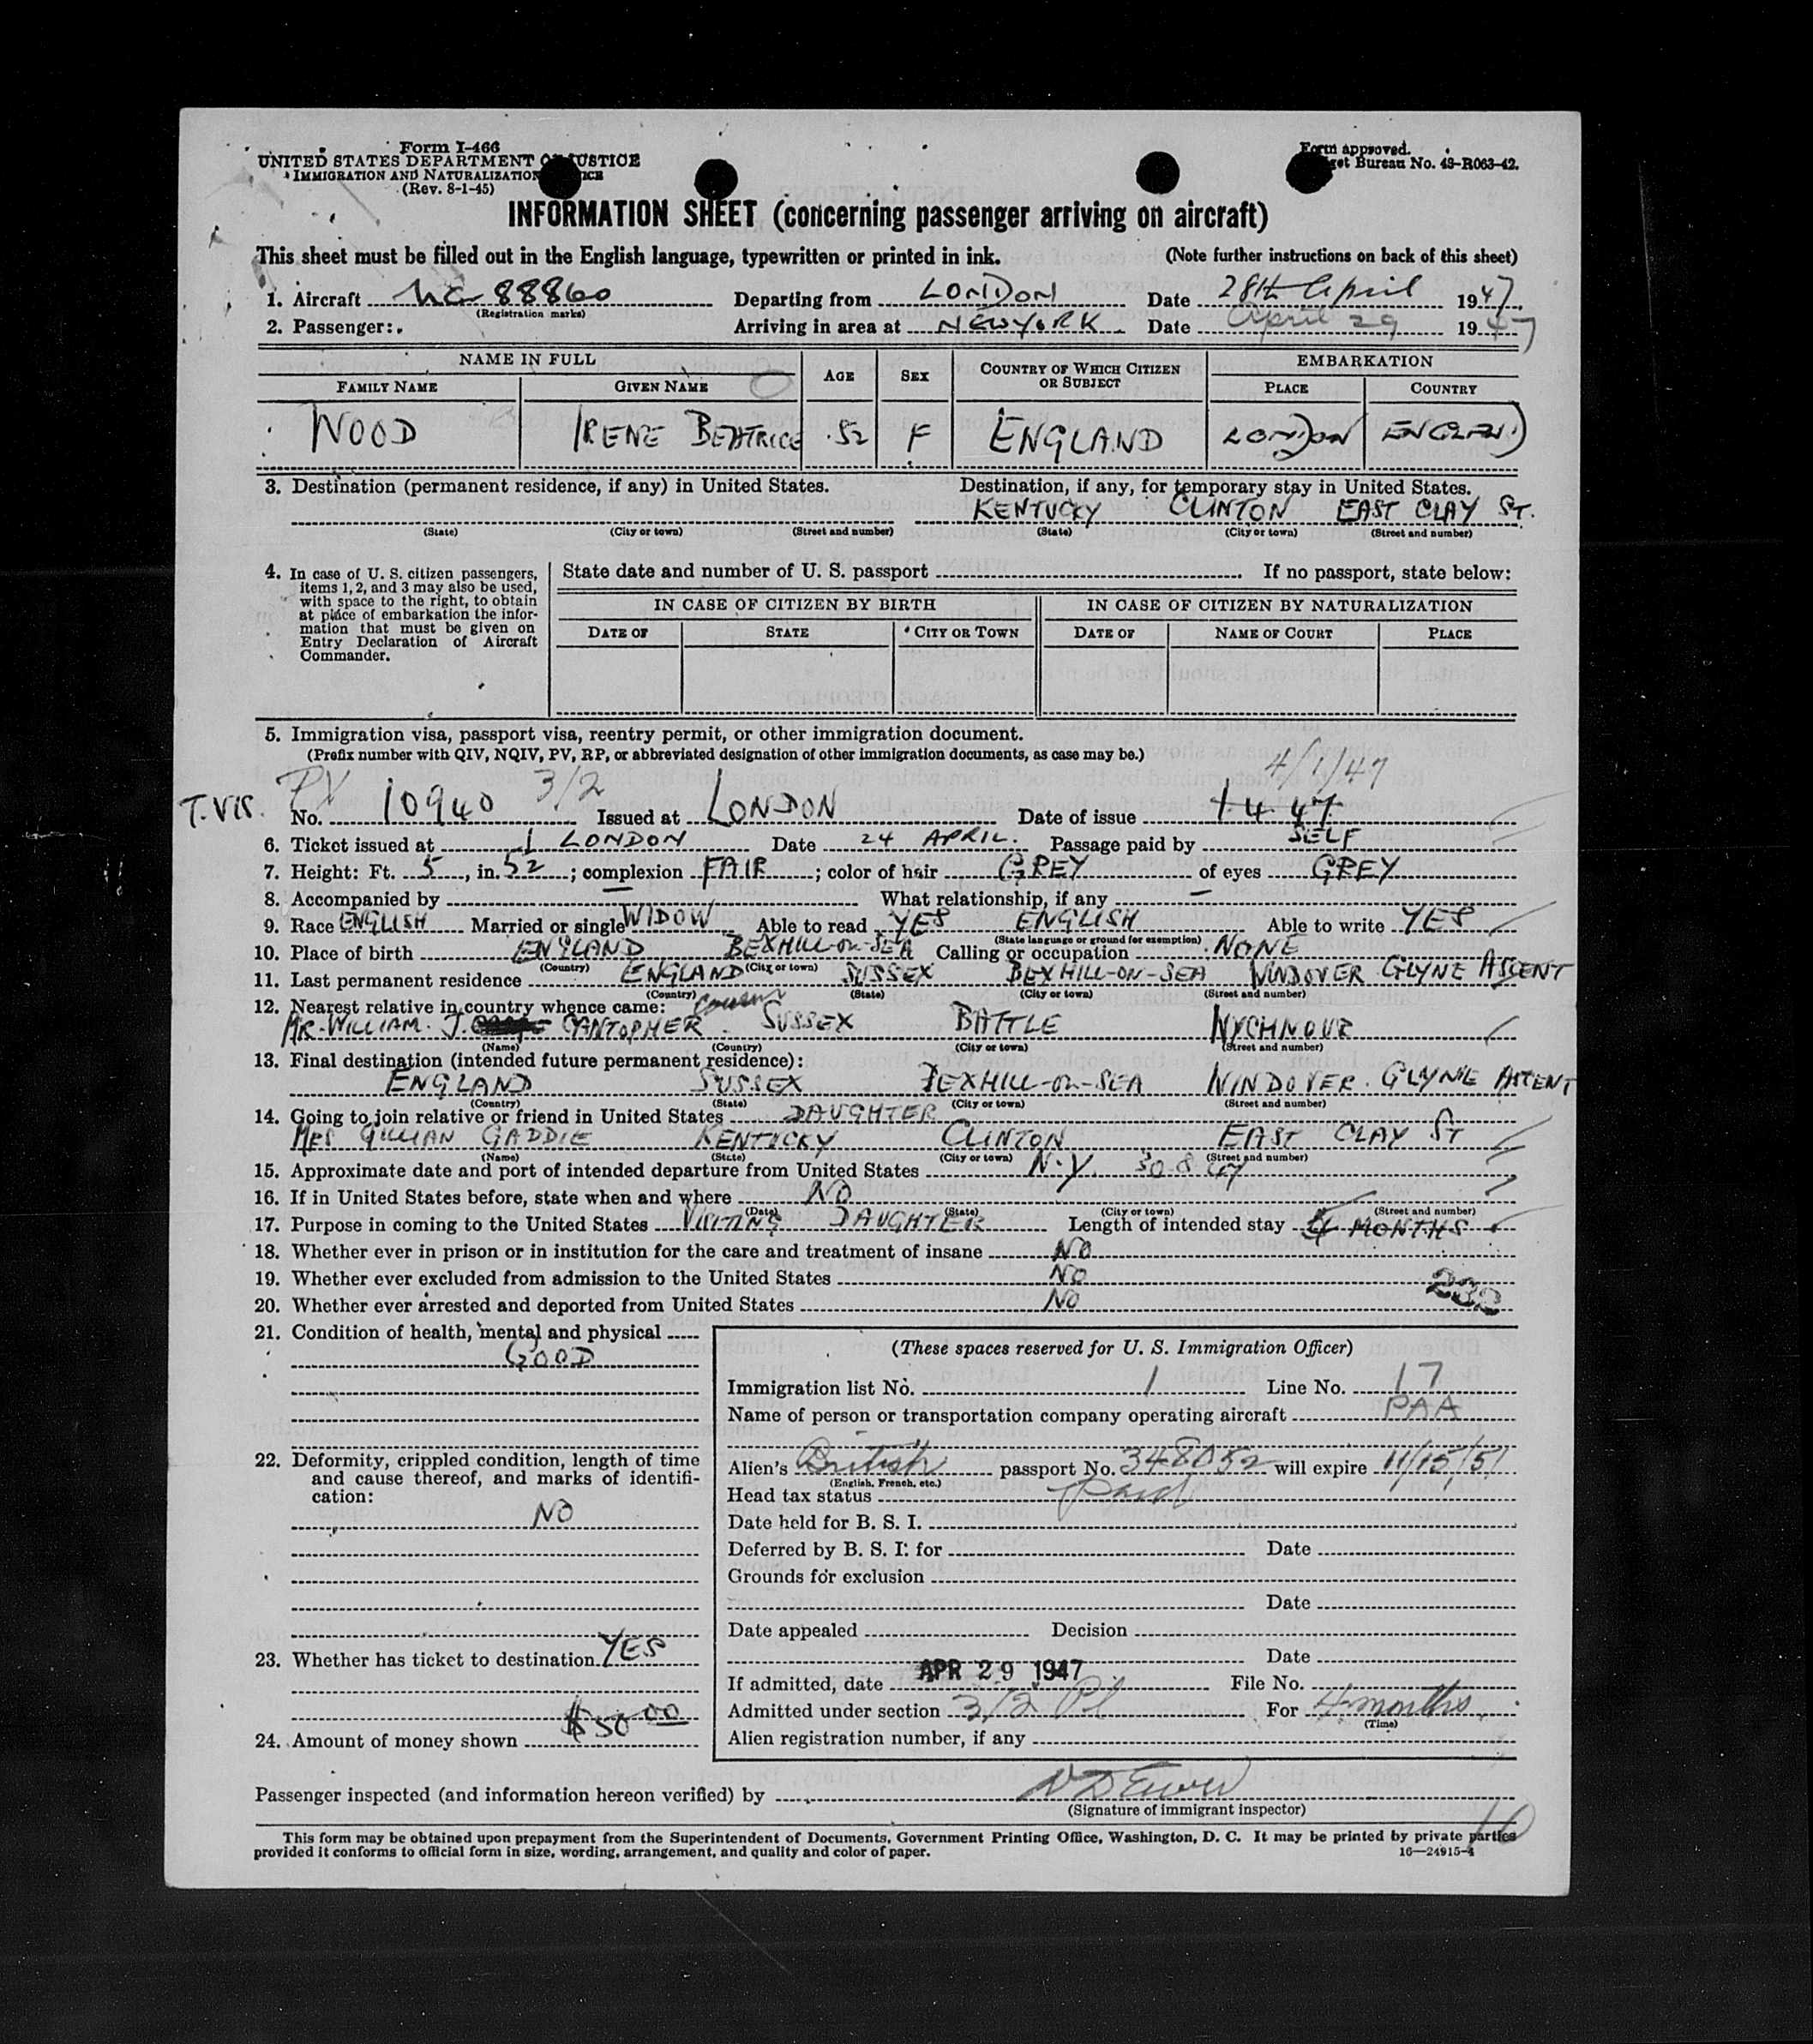 Form I-466
UNITED STATES DEPARTMENT OF JUSTICE
IMMIGRATION AND NATURALIZATION SERVICE
(Rev. 8-1-45)
Form approved.
Budget Bureau No. 43-R063-42.
INFORMATION SHEET (concerning passenger arriving on aircraft)
This sheet must be filled out in the English language, typewritten or printed in ink. (Note further instructions on back of this sheet)
1. Aircraft NC 88860 Departing from LONDON Date 28th April 1947
(Registration marks)
2. Passenger: Arriving in area at NEW YORK Date April 29 1947
NAME IN FULL AGE SEX COUNTRY OF WHICH CITIZEN OR SUBJECT EMBARKATION
FAMILY NAME GIVEN NAME PLACE COUNTRY
WOOD IRENE BEATRICE 52 F ENGLAND LONDON ENGLAND
3. Destination (permanent residence, if any) in United States. Destination, if any, for temporary stay in United States.
KENTUCKY CLINTON EAST CLAY ST.
(State) (City or town) (Street and number) (State) (City or town) (Street and number)
4. In case of U. S. citizen passengers, items 1, 2, and 3 may also be used, with space to the right, to obtain at place of embarkation the information that must be given on Entry Declaration of Aircraft Commander.
State date and number of U. S. passport If no passport, state below:
IN CASE OF CITIZEN BY BIRTH IN CASE OF CITIZEN BY NATURALIZATION
DATE OF STATE CITY OR TOWN DATE OF NAME OF COURT PLACE
5. Immigration visa, passport visa, reentry permit, or other immigration document.
(Prefix number with QIV, NQIV, PV, RP, or abbreviated designation of other immigration documents, as case may be.)
PV 3/2 4/1/47
T. VIS. No. 10940 Issued at LONDON Date of issue 1 4 47
6. Ticket issued at LONDON Date 24 APRIL. Passage paid by SELF
7. Height: Ft. 5, in. 52; complexion FAIR; color of hair GREY of eyes GREY
8. Accompanied by — What relationship, if any —
9. Race ENGLISH Married or single WIDOW Able to read YES ENGLISH Able to write YES
(State language or ground for exemption)
10. Place of birth ENGLAND BEXHILL-ON-SEA Calling or occupation NONE
(Country) (City or town)
11. Last permanent residence ENGLAND SUSSEX BEXHILL-ON-SEA WINDOVER GLYNE ASCENT
(Country) (State) (City or town) (Street and number)
12. Nearest relative in country whence came: Cousin
MR. WILLIAM. J. CANTOPHER. SUSSEX BATTLE
(Name) (Country) (City or town) (Street and number)
13. Final destination (intended future permanent residence):
ENGLAND SUSSEX BEXHILL-ON-SEA WINDOVER. GLYNE ASCENT
(Country) (State) (City or town) (Street and number)
14. Going to join relative or friend in United States DAUGHTER
MRS GILLIAN GADDIE KENTUCKY CLINTON EAST CLAY ST
(Name) (State) (City or town) (Street and number)
15. Approximate date and port of intended departure from United States N.Y. 30 8 47
16. If in United States before, state when and where NO
(Date) (State) (City or town) (Street and number)
17. Purpose in coming to the United States VISITING DAUGHTER Length of intended stay 4 MONTHS
18. Whether ever in prison or in institution for the care and treatment of insane NO
19. Whether ever excluded from admission to the United States NO
232
20. Whether ever arrested and deported from United States NO
21. Condition of health, mental and physical
GOOD
22. Deformity, crippled condition, length of time and cause thereof, and marks of identification:
NO
23. Whether has ticket to destination YES
24. Amount of money shown $50 00
(These spaces reserved for U. S. Immigration Officer)
Immigration list No. 1 Line No. 17
Name of person or transportation company operating aircraft PAA
Alien's British passport No. 348052 will expire 11/15/51
(English, French, etc.)
Head tax status Paid
Date held for B. S. I.
Deferred by B. S. I. for Date
Grounds for exclusion
Date
Date appealed Decision
Date
If admitted, date APR 29 1947 File No.
Admitted under section 3/2 For 4 months
(Time)
Alien registration number, if any
Passenger inspected (and information hereon verified) by
(Signature of immigrant inspector)
10
This form may be obtained upon prepayment from the Superintendent of Documents, Government Printing Office, Washington, D. C. It may be printed by private parties
provided it conforms to official form in size, wording, arrangement, and quality and color of paper. 16—24915-1